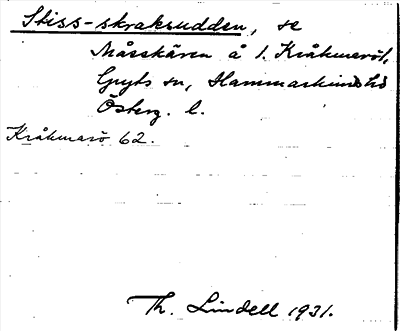 Stiss-skraksudden, se
Måsskären å 1. Kråkmarö,
Gryts sn, Hammarkinds hd
Österg. l.
Kråkmarö 62.
Th. Lindell 1931.